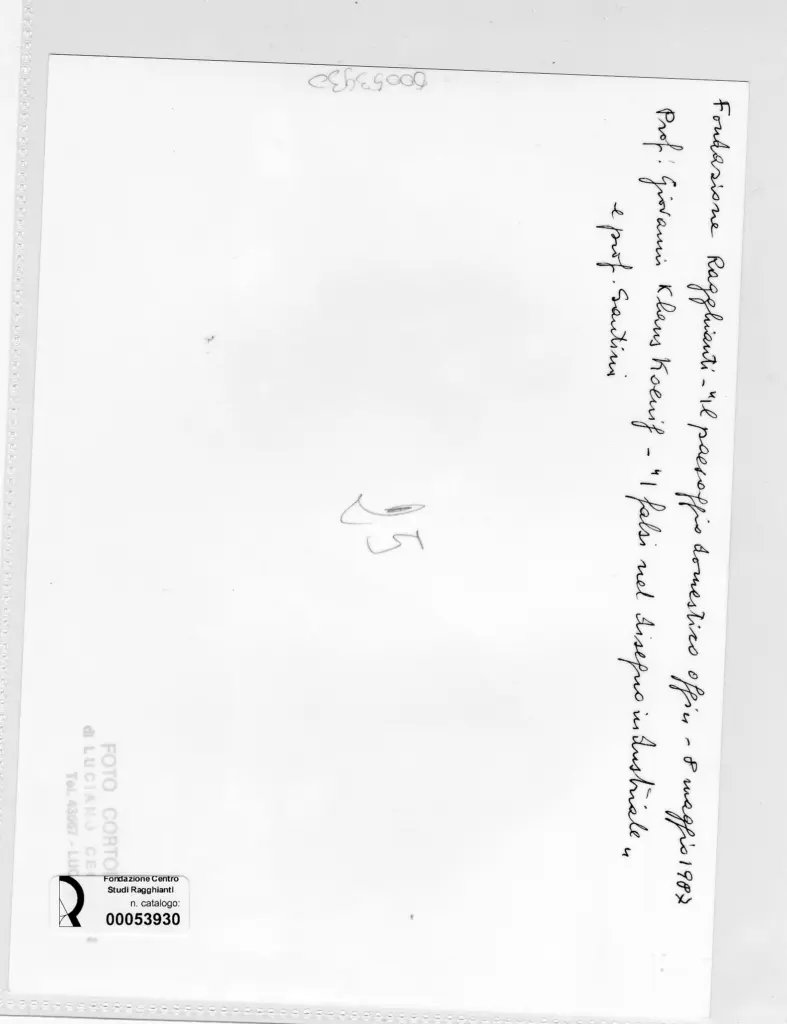 Fondazione Ragghianti - "Il paesaggio domestico oggi" - 8 maggio 1987
Prof: Giovanni Khaus Koenig - "I falsi nel disegno industriale"
e prof. Santini
00053930
25
FOTO CORTO
di LUCIANO CE
Tel. 43967 - LUC
Fondazione Centro
Studi Ragghianti
n. catalogo:
00053930